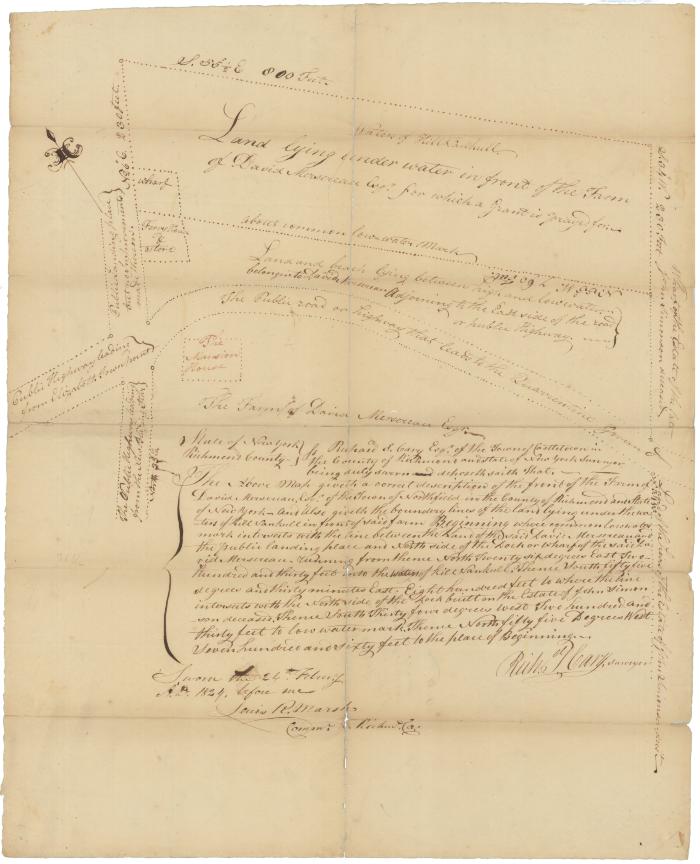 S. 55½ E 800 Feet
Waters of Kill Vankull
Land lying under water in front of the Farm
of David Mersereau Esqr. for which a Grant is prayed for
N 26 E 230 feet
wharf
Ferry House
&
Store
about common low water Mark
N 55 W 760
Land and beach lying between high and low water
belong to David Mersereau Adjoining to the East side of the road
or public Highway
The Public road or Highway that leads to the Quarrentine
Public landing place
Public Highway leading
from Elizabeth Town point
The
Mansion
House
The Farm of David Mersereau Esqr.
The Public Highway
S 34 W 230 feet
John Simonson deceased
State of New York
Richmond County
Ss Richard S. Cary Esqr. of the Town of Castletown in
the County of Richmond and state of New York Surveyor
being duly sworn deposeth saith That
The Above Map giveth a correct description of the front of the Farm of
David Mersereau Esqr. of the Town of Northfield in the County of Richmond and State
of New York And also giveth the boundry lines of the land lying under the wa-
ters of Kill Vankull in front of said farm Beginning where common low water
mark intersects with the line between the Land of the said David Mersereau and
the public landing place and North side of the Dock or wharf of the said Da-
vid Mersereau running from thence North Twenty six degrees East Two
hundred and thirty feet into the waters of Kill Vankull Thence South fifty five
degrees and thirty minutes East Eight hundred feet to where the line
intersects with the North side of the Dock built on the Estate of John Simon-
son deceased Thence South Thirty four degrees west Two hundred and
thirty feet to low water mark Thence North fifty five Degrees West
Seven hundred and sixty feet to the place of Beginning
Richd. S. Cary Surveyor
Sworn the 24th Feby
A.D. 1824 before me
Louis R. Marsh
Commr. Richmd. Co.